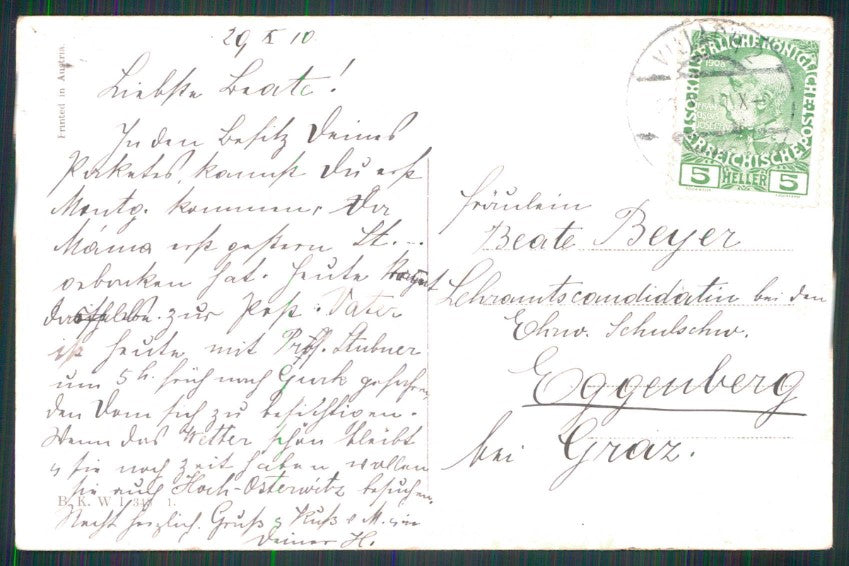 29 X 10
Printed in Austria.
Liebste Beate!
In den Besitz Deines
Paketes, kannst Du erst
Montg. kommen, da
Mama erst gestern St....
gebacken hat. Heute
zur Post. Vater
ist heute mit Prof. Stubner
um 5 h. früh nach Gurk gefahren,
den Dom sich zu besichtigen.
Wenn das Wetter schön bleibt
u sie noch Zeit haben wollen
sie auch Hoch-Osterwitz besuchen.
B. K. W. I.
Recht herzlich. Gruß u Kuß
Deiner H.
KAISERLICHE KÖNIGLICHE
ÖSTERREICHISCHE POST
1908
5 HELLER 5
Fräulein
Beate Beyer
Lehramtscandidatin bei den
Ehrw. Schulschw.
Eggenberg
bei Graz.